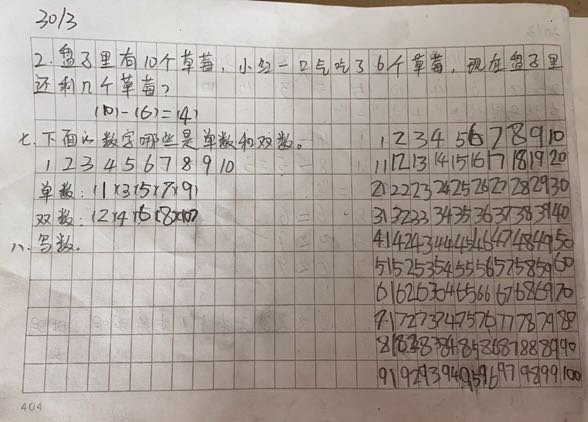 30/3
2.盘子里有10个草莓，小红一口气吃了6个草莓，现在盘子里
还剩几个草莓？
(10)-(6)=(4)
七、下面的数字哪些是单数和双数。
1 2 3 4 5 6 7 8 9 10
单数：(1)(3)(5)(7)(9)
双数：(2)(4)(6)(8)(10)
八、写数。
1 2 3 4 5 6 7 8 9 10
11 12 13 14 15 16 17 18 19 20
21 22 23 24 25 26 27 28 29 30
31 32 33 34 35 36 37 38 39 40
41 42 43 44 45 46 47 48 49 50
51 52 53 54 55 56 57 58 59 60
61 62 63 64 65 66 67 68 69 70
71 72 73 74 75 76 77 78 79 80
81 82 83 84 85 86 87 88 89 90
91 92 93 94 95 96 97 98 99 100
404